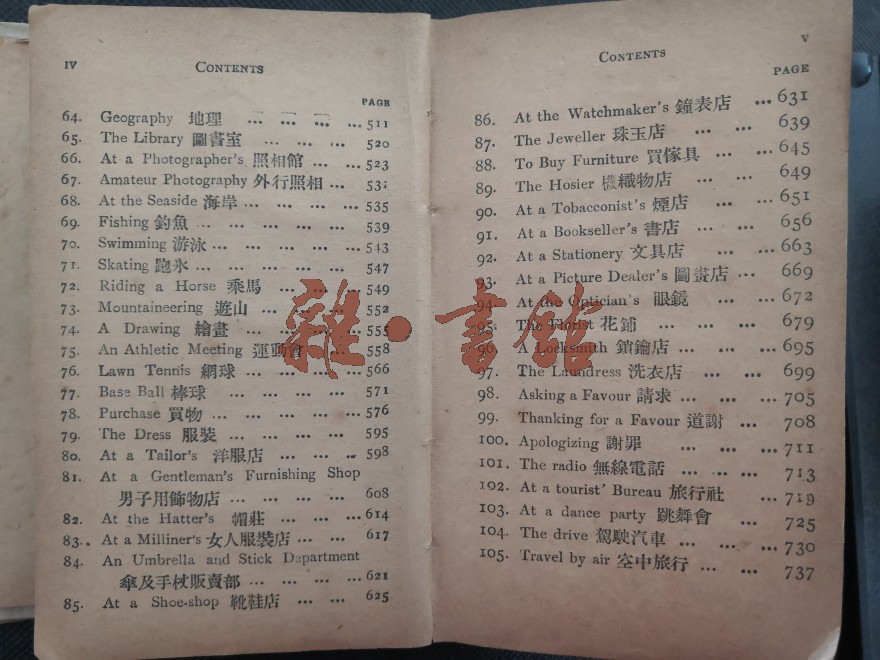 IV CONTENTS
PAGE
64. Geography 地理 ... ... ... ... 511
65. The Library 圖書室 ... ... ... 520
66. At a Photographer's 照相館 ... ... 523
67. Amateur Photography 外行照相 ... 53
68. At the Seaside 海岸 ... ... ... 535
69. Fishing 釣魚 ... ... ... ... 539
70. Swimming 游泳 ... ... ... ... 543
71. Skating 跑氷 ... ... ... ... ... 547
72. Riding a Horse 乘馬 ... ... ... 549
73. Mountaineering 遊山 ... ... ... 552
74. A Drawing 繪畫 ... ... ... ... 555
75. An Athletic Meeting 運動會 ... ... 558
76. Lawn Tennis 網球 ... ... ... ... 566
77. Base Ball 棒球 ... ... ... ... 571
78. Purchase 買物 ... ... ... ... 576
79. The Dress 服裝 ... ... ... ... 595
80. At a Tailor's 洋服店 ... ... ... 598
81. At a Gentleman's Furnishing Shop
男子用飾物店 ... ... ... ... 608
82. At the Hatter's 帽莊 ... ... ... 614
83. At a Milliner's 女人服裝店 ... ... 617
84. An Umbrella and Stick Department
傘及手杖販賣部 ... ... ... ... 621
85. At a Shoe-shop 靴鞋店 ... ... 625
CONTENTS V
PAGE
86. At the Watchmaker's 鐘表店 ... 631
87. The Jeweller 珠玉店 ... ... 639
88. To Buy Furniture 買傢具 ... ... 645
89. The Hosier 機織物店 ... ... 649
90. At a Tobacconist's 煙店 ... ... 651
91. At a Bookseller's 書店 ... ... 656
92. At a Stationery 文具店 ... ... 663
93. At a Picture Dealer's 圖畫店 ... 669
94. At the Optician's 眼鏡 ... ... 672
95. The Florist 花鋪 ... ... ... 679
96. A Locksmith 鎖鑰店 ... ... ... 695
97. The Laundress 洗衣店 ... ... 699
98. Asking a Favour 請求 ... ... ... 705
99. Thanking for a Favour 道謝 ... 708
100. Apologizing 謝罪 ... ... ... 711
101. The radio 無線電話 ... ... ... 713
102. At a tourist' Bureau 旅行社 ... 719
103. At a dance party 跳舞會 ... 725
104. The drive 駕駛汽車 ... ... ... 730
105. Travel by air 空中旅行 ... ... 737
雜·書館